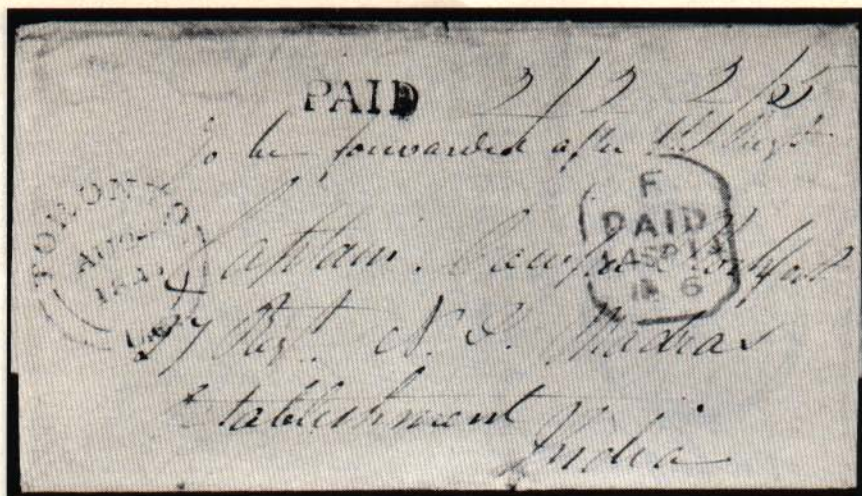 PAID 2/2 2/5
To be forwarded after 1st Augt
TORONTO
AUG
184
F
PAID
14
6
Captain
Regt. N. I. Madras
Establishment
India